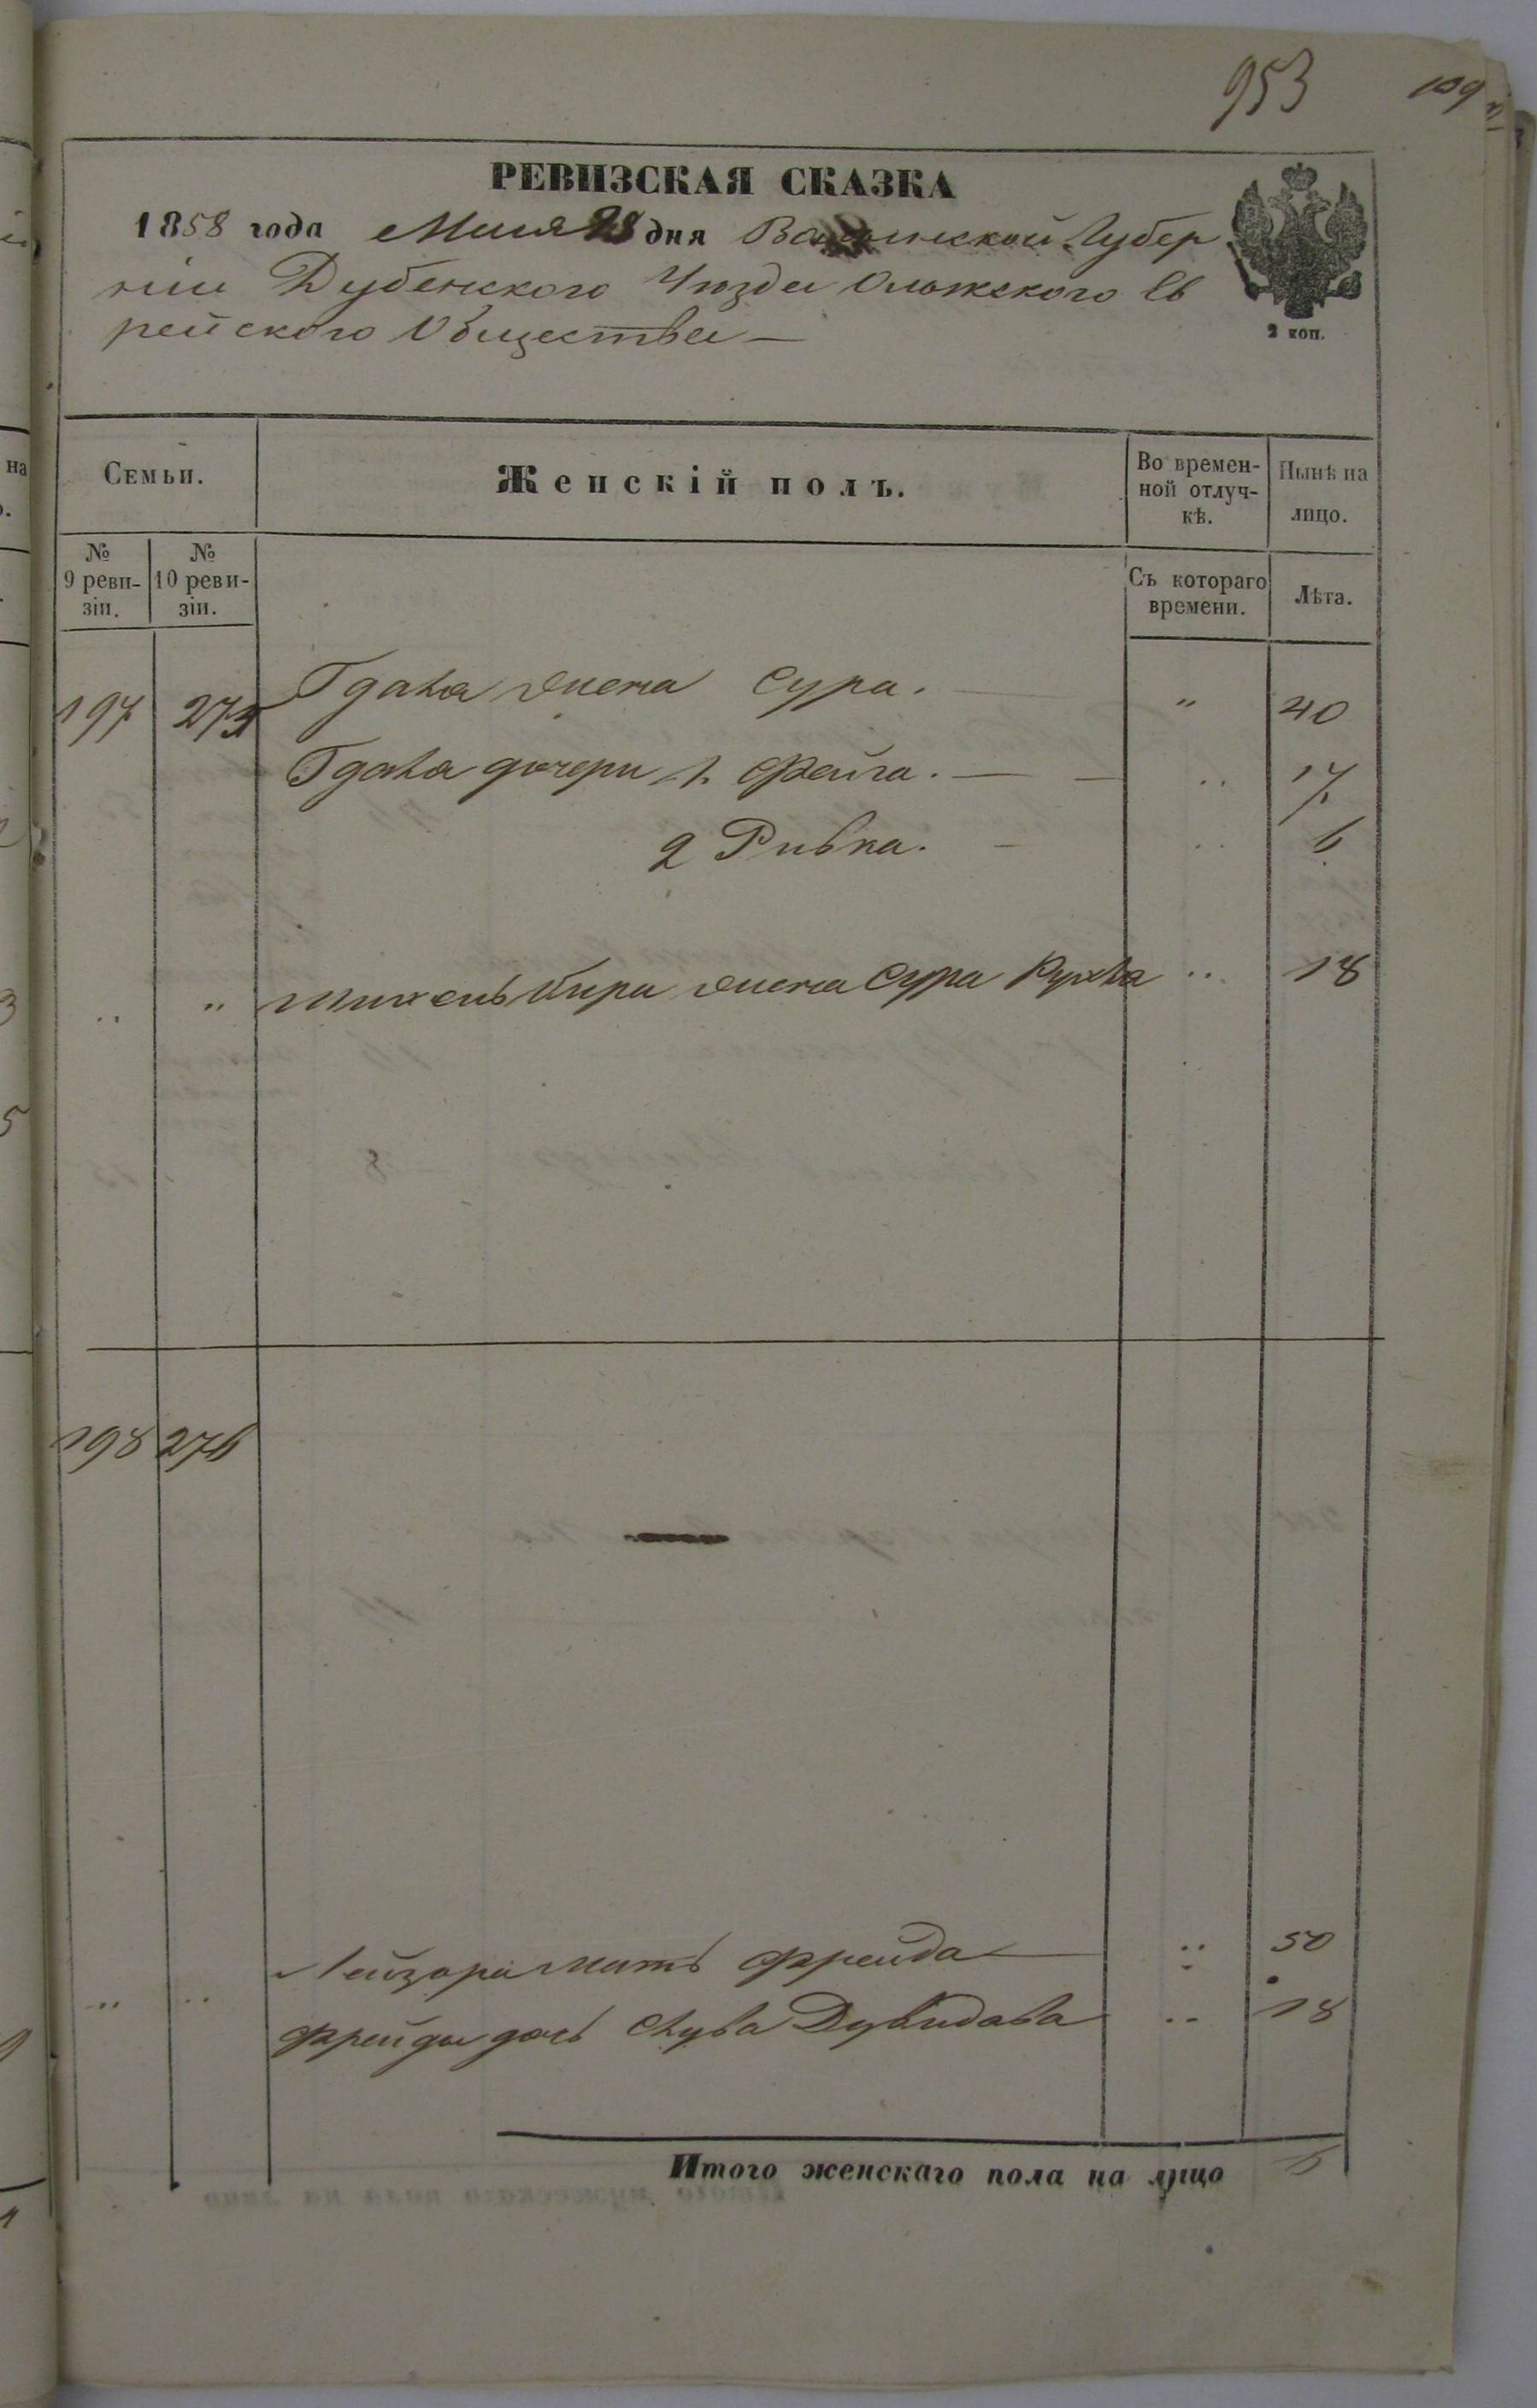 953
109
РЕВИЗСКАЯ СКАЗКА
1858 года Мая 28 дня Волынской Губер
ніи Дубенского Уѣзда Олыжского Ев
рейского Общества —
2 коп.
Семьи.
Женскій полъ.
Во времен-
ной отлуч-
кѣ.
Нынѣ на
лицо.
№
9 реви-
зіи.
№
10 реви-
зіи.
Съ котораго
времени.
Лѣта.
197 275 Гдаля жена Сура. — " 40
Гдаля дочери 1. Фейга. — — " 17
2 Ривка. — " 6
" " жена Сура Рухля " 18
198 276
Лейзора мать Фрейда — " 50
" " Фрейды дочь Дувидова " 18
Итого женскаго пола на лицо 6